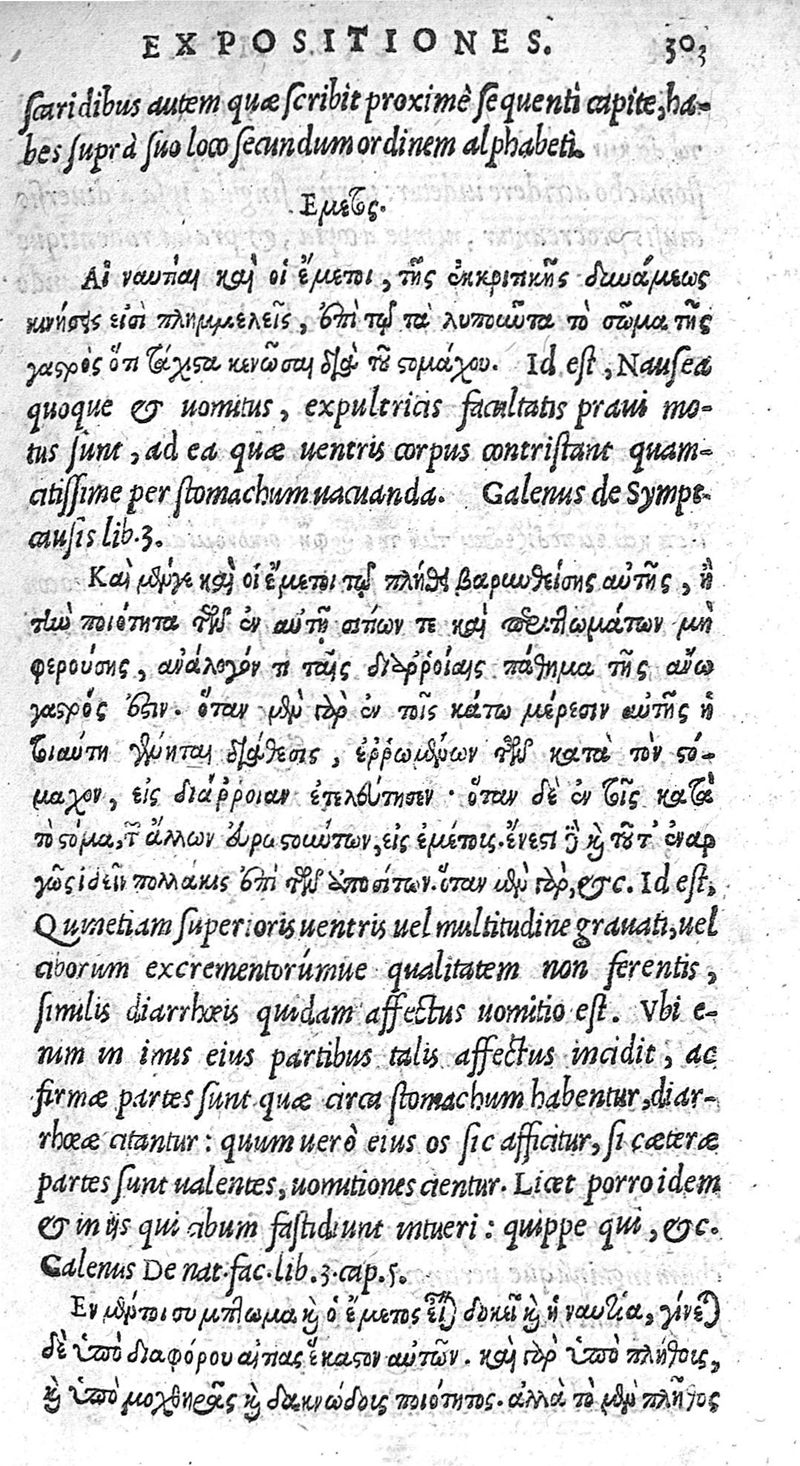 EXPOSITIONES. 303
scaridibus autem quæ scribit proximè sequenti capite, ha-
bes suprà suo loco secundum ordinem alphabeti.
Εμετος.
Αἱ ναυτίαι καὶ οἱ ἔμετοι, τῆς ἐκκριτικῆς δυνάμεως
κινήσεις εἰσὶ πλημμελεῖς, ἐπὶ τῷ τὰ λυποῦντα τὸ σῶμα τῆς
γαστρὸς ὅτι τάχιστα κενῶσαι διὰ τοῦ στομάχου. Id est, Nausea
quoque & uomitus, expultricis facultatis praui mo-
tus sunt, ad ea quæ uentris corpus contristant quam-
citissime per stomachum uacuanda. Galenus de Sympt.
causis lib. 3.
Καὶ μέν γε καὶ οἱ ἔμετοι τῷ πλήθει βαρυνθείσης αὐτῆς, ἢ
τὴν ποιότητα τῶν ἐν αὐτῇ σιτίων τε καὶ περιττωμάτων μὴ
φερούσης, ἀνάλογόν τι ταῖς διαῤῥοίαις πάθημα τῆς ἄνω
γαστρός ἐστιν. ὅταν μὲν γὰρ ἐν τοῖς κάτω μέρεσιν αὐτῆς ἡ
τοιαύτη γένηται διάθεσις, ἐῤῥωμένων τῶν κατὰ τὸν στό-
μαχον, εἰς διάῤῥοιαν ἐτελεύτησεν. ὅταν δὲ ἐν τοῖς κατὰ
τὸ στόμα, τῶν ἄλλων εὐρωστούντων, εἰς ἐμέτους. ἔνεστι δὲ καὶ τοῦτ' ἐναρ
γῶς ἰδεῖν πολλάκις ἐπὶ τῶν ἀποσίτων. ὅταν μὲν γὰρ, &c. Id est,
Qumetiam superioris uentris uel multitudine grauati, uel
ciborum excrementorúmue qualitatem non ferentis,
similis diarrhœis quidam affectus uomitio est. Vbi e-
nim in imis eius partibus talis affectus incidit, ac
firmæ partes sunt quæ circa stomachum habentur, diar-
rhœæ citantur: quum uerò eius os sic afficitur, si cæteræ
partes sunt ualentes, uomitiones cientur. Licet porro idem
& in ijs qui cibum fastidiunt intueri: quippe qui, &c.
Galenus De nat. fac. lib. 3. cap. 5.
Εν μέντοι σύμπτωμα καὶ ὁ ἔμετος εἶναι δοκεῖ καὶ ἡ ναυτία, γίνεται
δὲ ὑπὸ διαφόρου αἰτίας ἕκαστον αὐτῶν. καὶ γὰρ ὑπὸ πλήθους,
καὶ ὑπὸ μοχθηρᾶς καὶ δακνώδους ποιότητος. ἀλλὰ τὸ μὲν πλῆθος